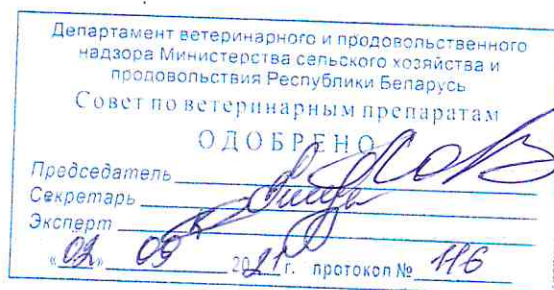 Департамент ветеринарного и продовольственного
надзора Министерства сельского хозяйства и
продовольствия Республики Беларусь
Совет по ветеринарным препаратам
ОДОБРЕНО
Председатель
Секретарь
Эксперт
«02» 09 2021 г. протокол № 116